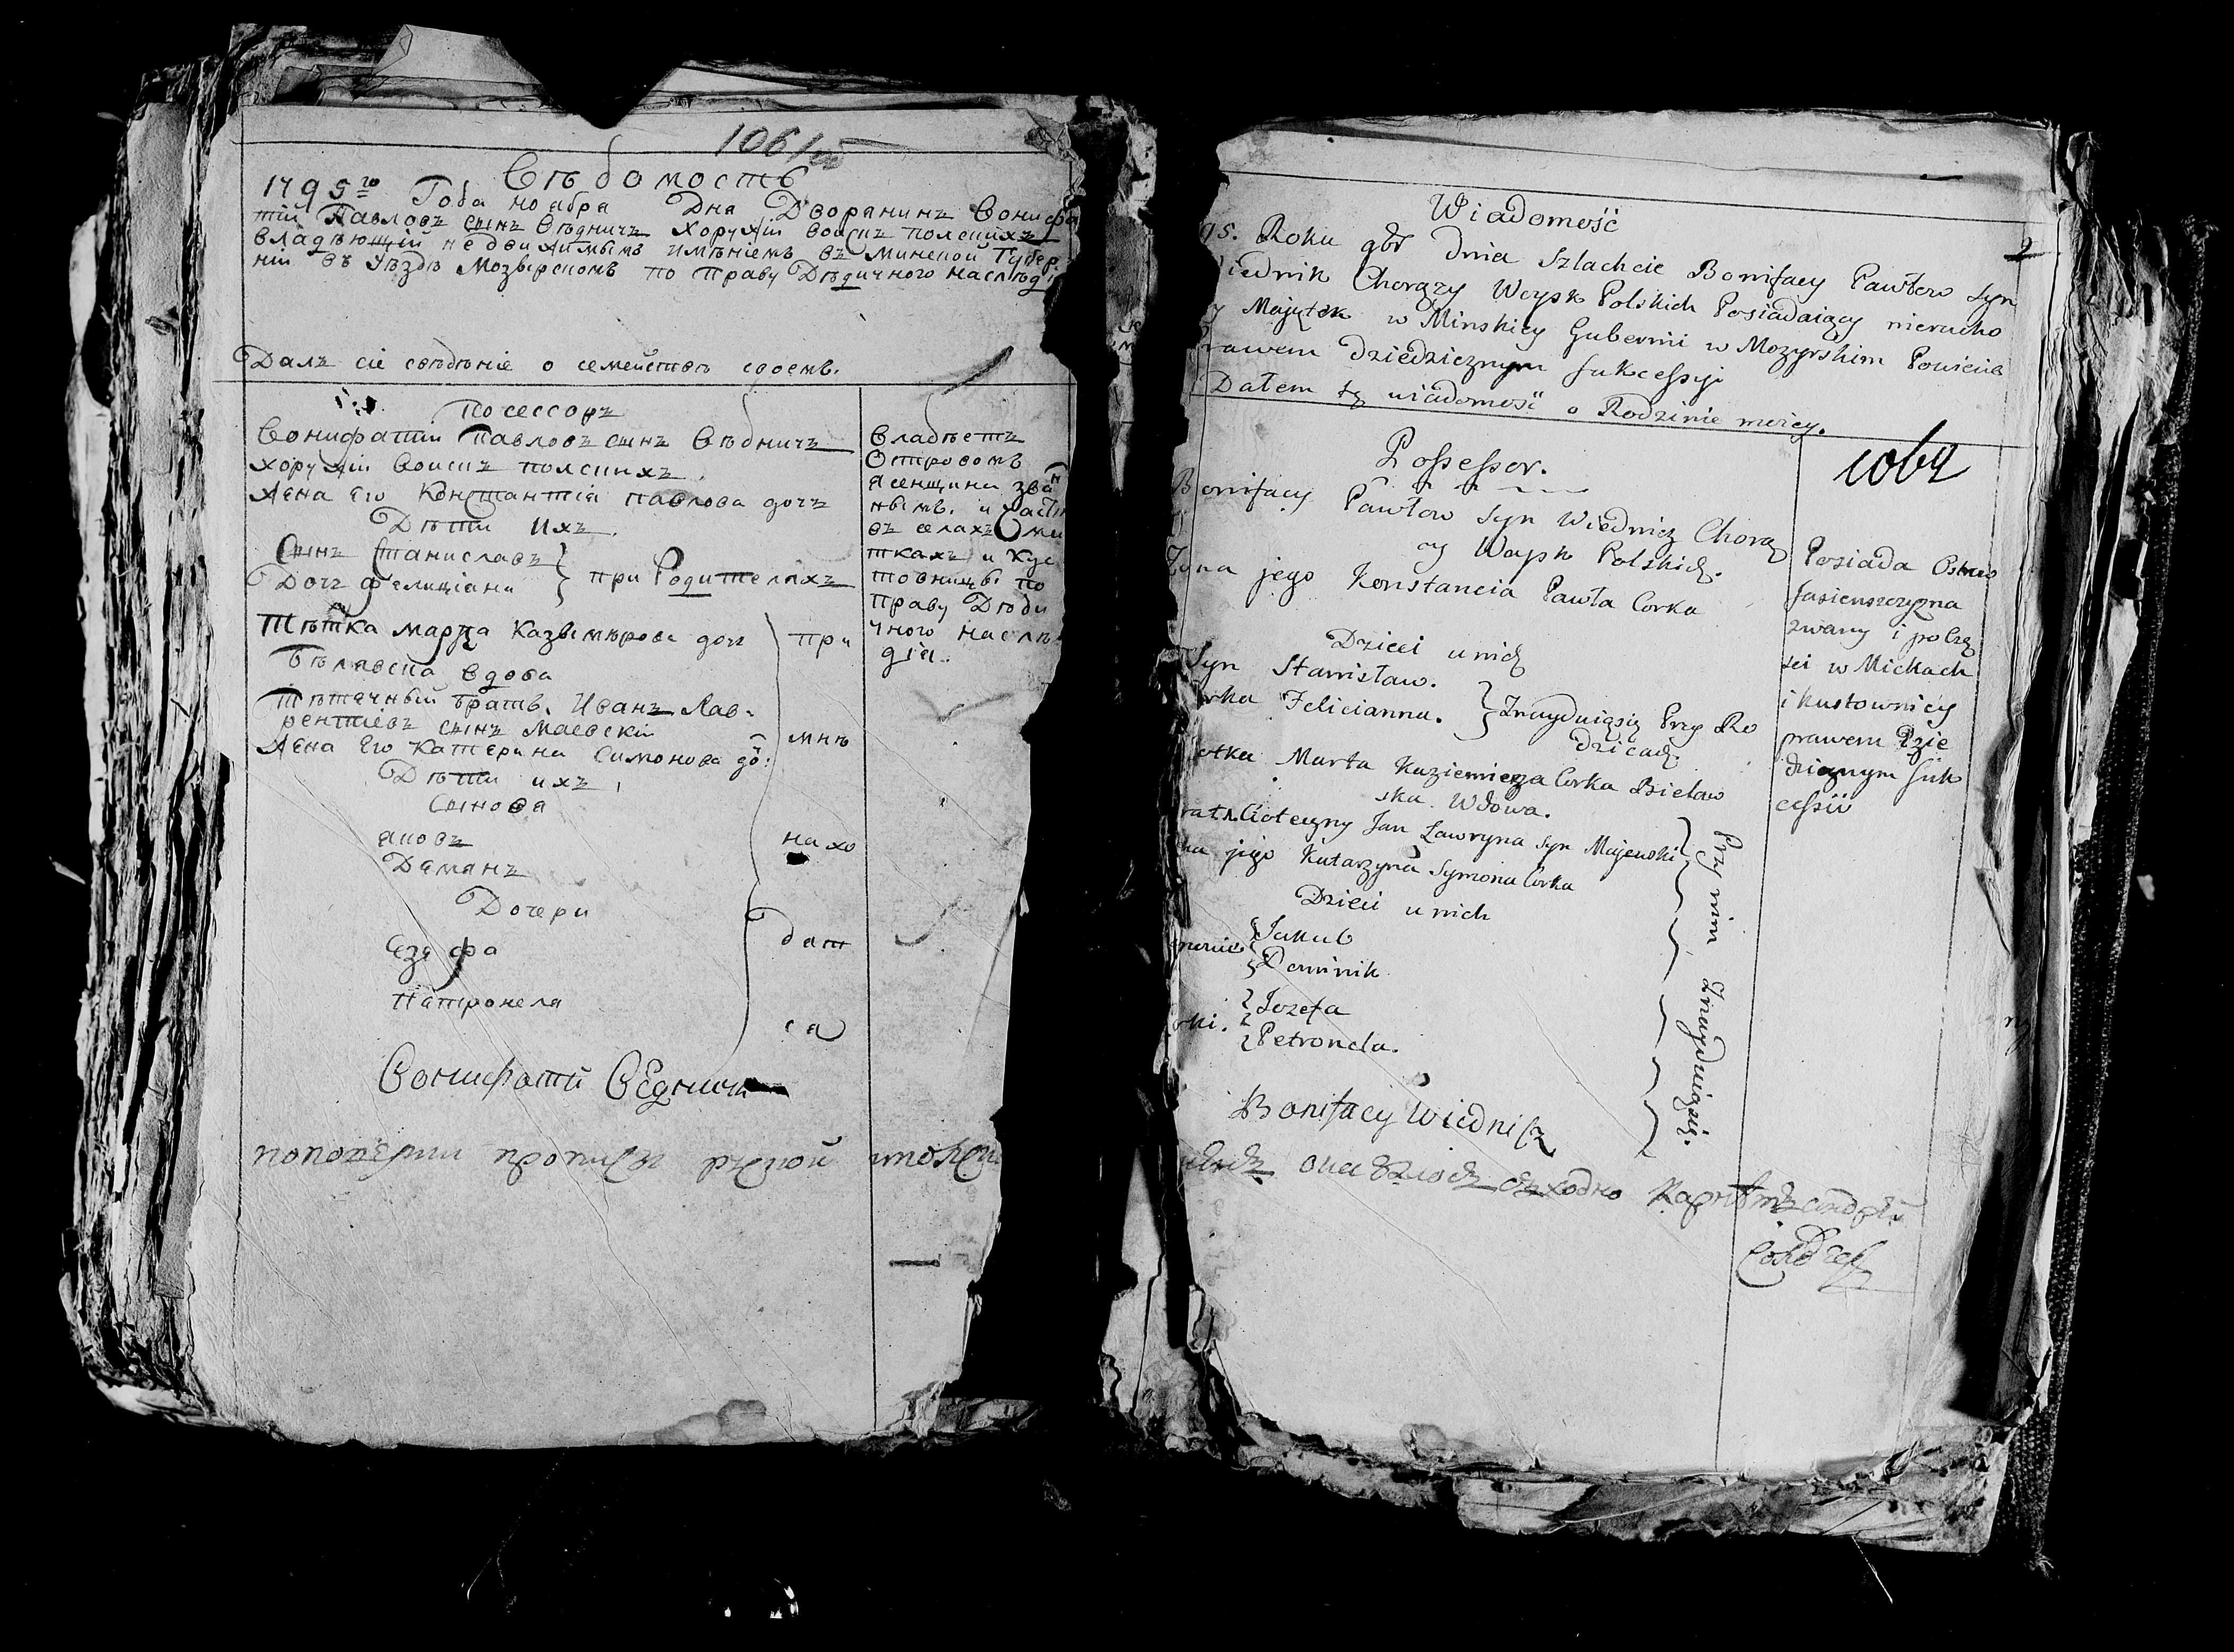 Вѣдомость
1795го Года ноабра Дна Дворянинъ Вонифа
тій Павловъ сынъ Вѣдничъ хоружій воискъ полскихъ
владѣющій недвижимымъ имѣніемъ въ Минской Губер
ніи въ Уѣздѣ Мозырскомъ по праву Дѣдичного наслѣд
Далъ сіе свѣдѣніе о семействѣ своемъ.
Посессоръ
Вонифатій Павловъ сынъ Вѣдничъ
хоружій воискъ полскихъ
Жена Его Константіа павлова дочъ
Дѣти ихъ.
Сынъ Станиславъ
Дочъ Фелиціана
при Родителяхъ
Тіотка марта Казимѣрова доч
Бѣлявска вдова
Тіотечный братъ. Иванъ Лав-
рентіевъ сынъ Маевскій
Жена Его Катерина Симонова до:
Дѣти ихъ
Сынова
Яковъ
Доменъ
Дочери
Езефа
Патронела
при
мнѣ
нахо
дат
са
Владѣетъ
Островомъ
Ясенщина зва
нымъ. и част
въ селахъ Ми
ткахъ и Кус
товницы по
праву Дѣди
чного наслѣ
діа.
Вонифатій Ведничъ
Wiadomość
2
95. Roku 9br dnia Szlachcic Bonifacy Pawłow Syn
iednik Chorązy Woysk Polskich Posiadaiący nierucho
y Maiątek w Minskiey Gubernii w Mozyrskim Powiecie
rawem dziedzicznym Sukcessyi
Dałem tę wiadomość o Rodzinie moiey.
Possessor.
Bonifacy Pawłow Syn Wiednicz Chorą
zy Woysk Polskich.
Zona jego Konstancia Pawła Corka
Dzieci u nich
Syn Stanisław.
orka Felicianna.
Znayduiąsię Przy Ro
dzicach.
iotka Marta Kaziemierza Corka Bielaw
ska Wdowa.
rat Cioteczny Jan Lawryna Syn Majewski
na jego Katarzyna Symona Corka
Dzieci u nich
Jakub
Dominik
rki.
Jozefa
Petronela.
Przy mnie Znayduiąsię.
Posiada Ostrow
Jasienszczyzna
zwany i po częs
ci w Mickach
i Kustownicy
prawem Dzie
dzicznym Suk
cessii
Bonifacy Wiednicz